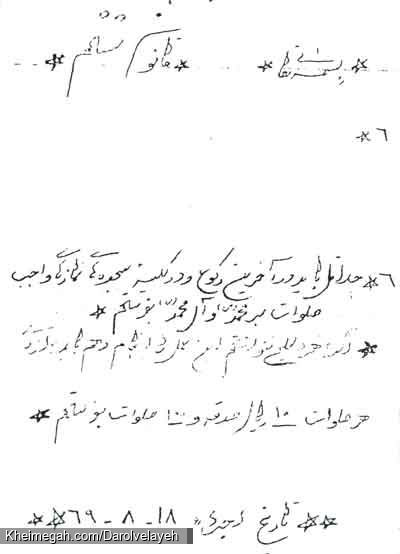 ☆ بسمه تعالی ☆ قانون سیستم ☆
☆ ٦
٦☆ حداقل باید در آخرین رکوع و در کلیه سجده‌های نمازهای واجب
صلوات بر محمد (ص) و آل محمد (ص) بفرستم ☆
☆ نتوانستم این عمل را انجام دهم باید
هر صلوات ۱۰ ریال صدقه و ۱۰۰ صلوات بفرستم ☆
☆☆ تاریخ اجراء ۱۸ - ۸ - ۶۹ ☆☆
Kheimegah.com/Darolvelayeh